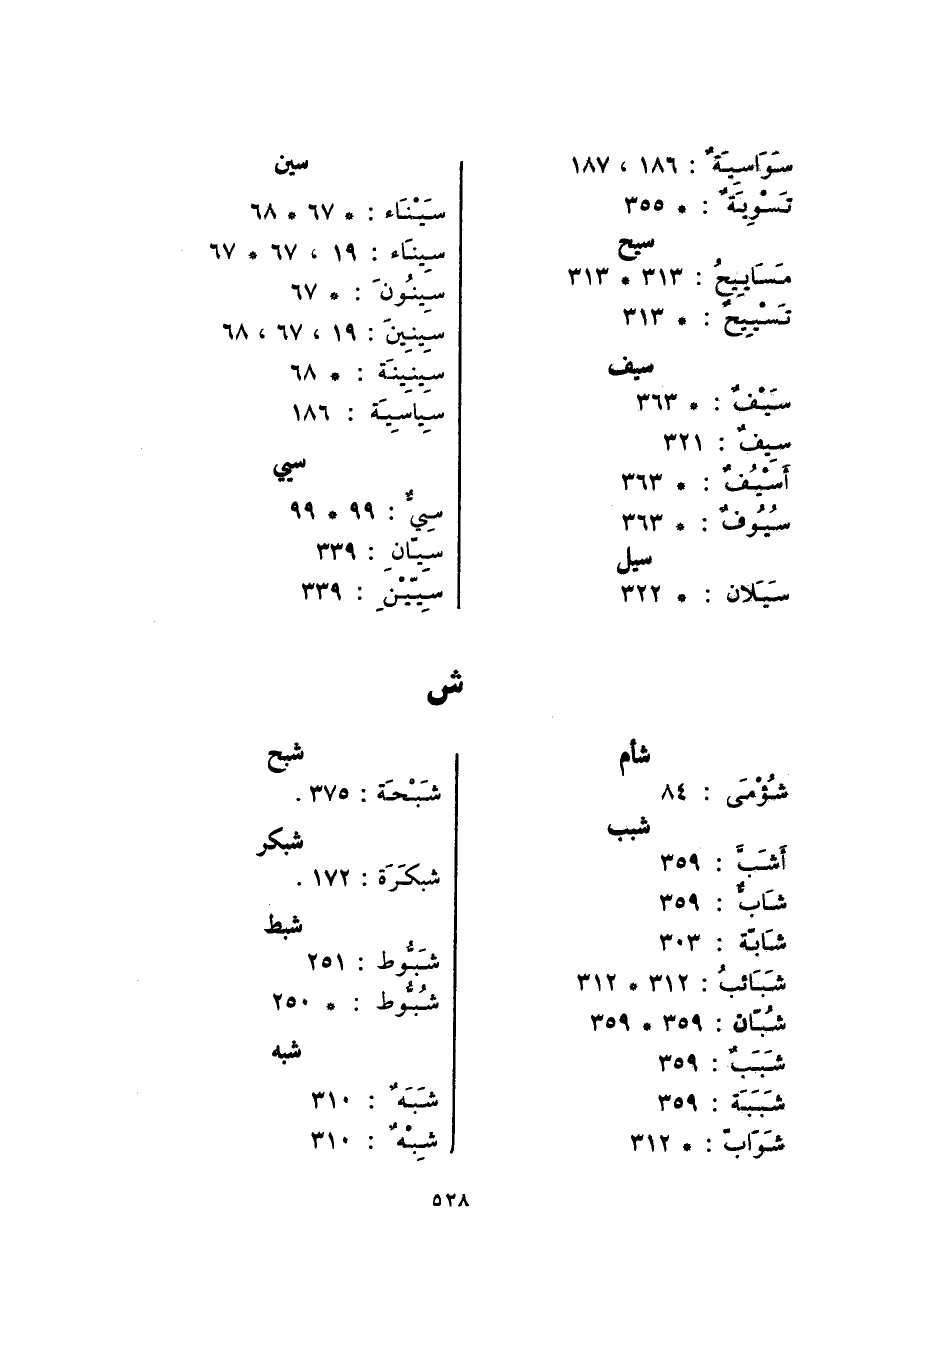 سَوَاسِيَةٌ : ١٨٦ ، ١٨٧
تَسْوِيَةٌ : * ٣٥٥
سيح
مَسَايِيحُ : ٣١٣ * ٣١٣
تَسْيِيحٌ : * ٣١٣
سيف
سَيْفٌ : * ٣٦٣
سِيفٌ : ٣٢١
أَسْيُفٌ : * ٣٦٣
سُيُوفٌ : * ٣٦٣
سيل
سَيَلان : * ٣٢٢
سين
سَيْنَاء : * ٦٧ * ٦٨
سِينَاء : ١٩ ، ٦٧ * ٦٧
سِينُونَ : * ٦٧
سِينِينَ : ١٩ ، ٦٧ ، ٦٨
سِينِينَة : * ٦٨
سِياسِيَة : ١٨٦
سيي
سِيٌّ : ٩٩ * ٩٩
سِيّانِ : ٣٣٩
سِيّيْنِ : ٣٣٩
ش
شأم
شُؤْمَى : ٨٤
شبب
أَشَبَّ : ٣٥٩
شَابٌّ : ٣٥٩
شَابّة : ٣٠٣
شَبَائبُ : ٣١٢ * ٣١٢
شُبّان : ٣٥٩ * ٣٥٩
شَبَبٌ : ٣٥٩
شَبَبَة : ٣٥٩
شَوَابّ : * ٣١٢
شبح
شَبْحَة : ٣٧٥ .
شبكر
شبكَرَة : ١٧٢ .
شبط
شَبُّوط : ٢٥١
شُبُّوط : * ٢٥٠
شبه
شَبَهٌ : ٣١٠
شِبْهٌ : ٣١٠
٥٢٨